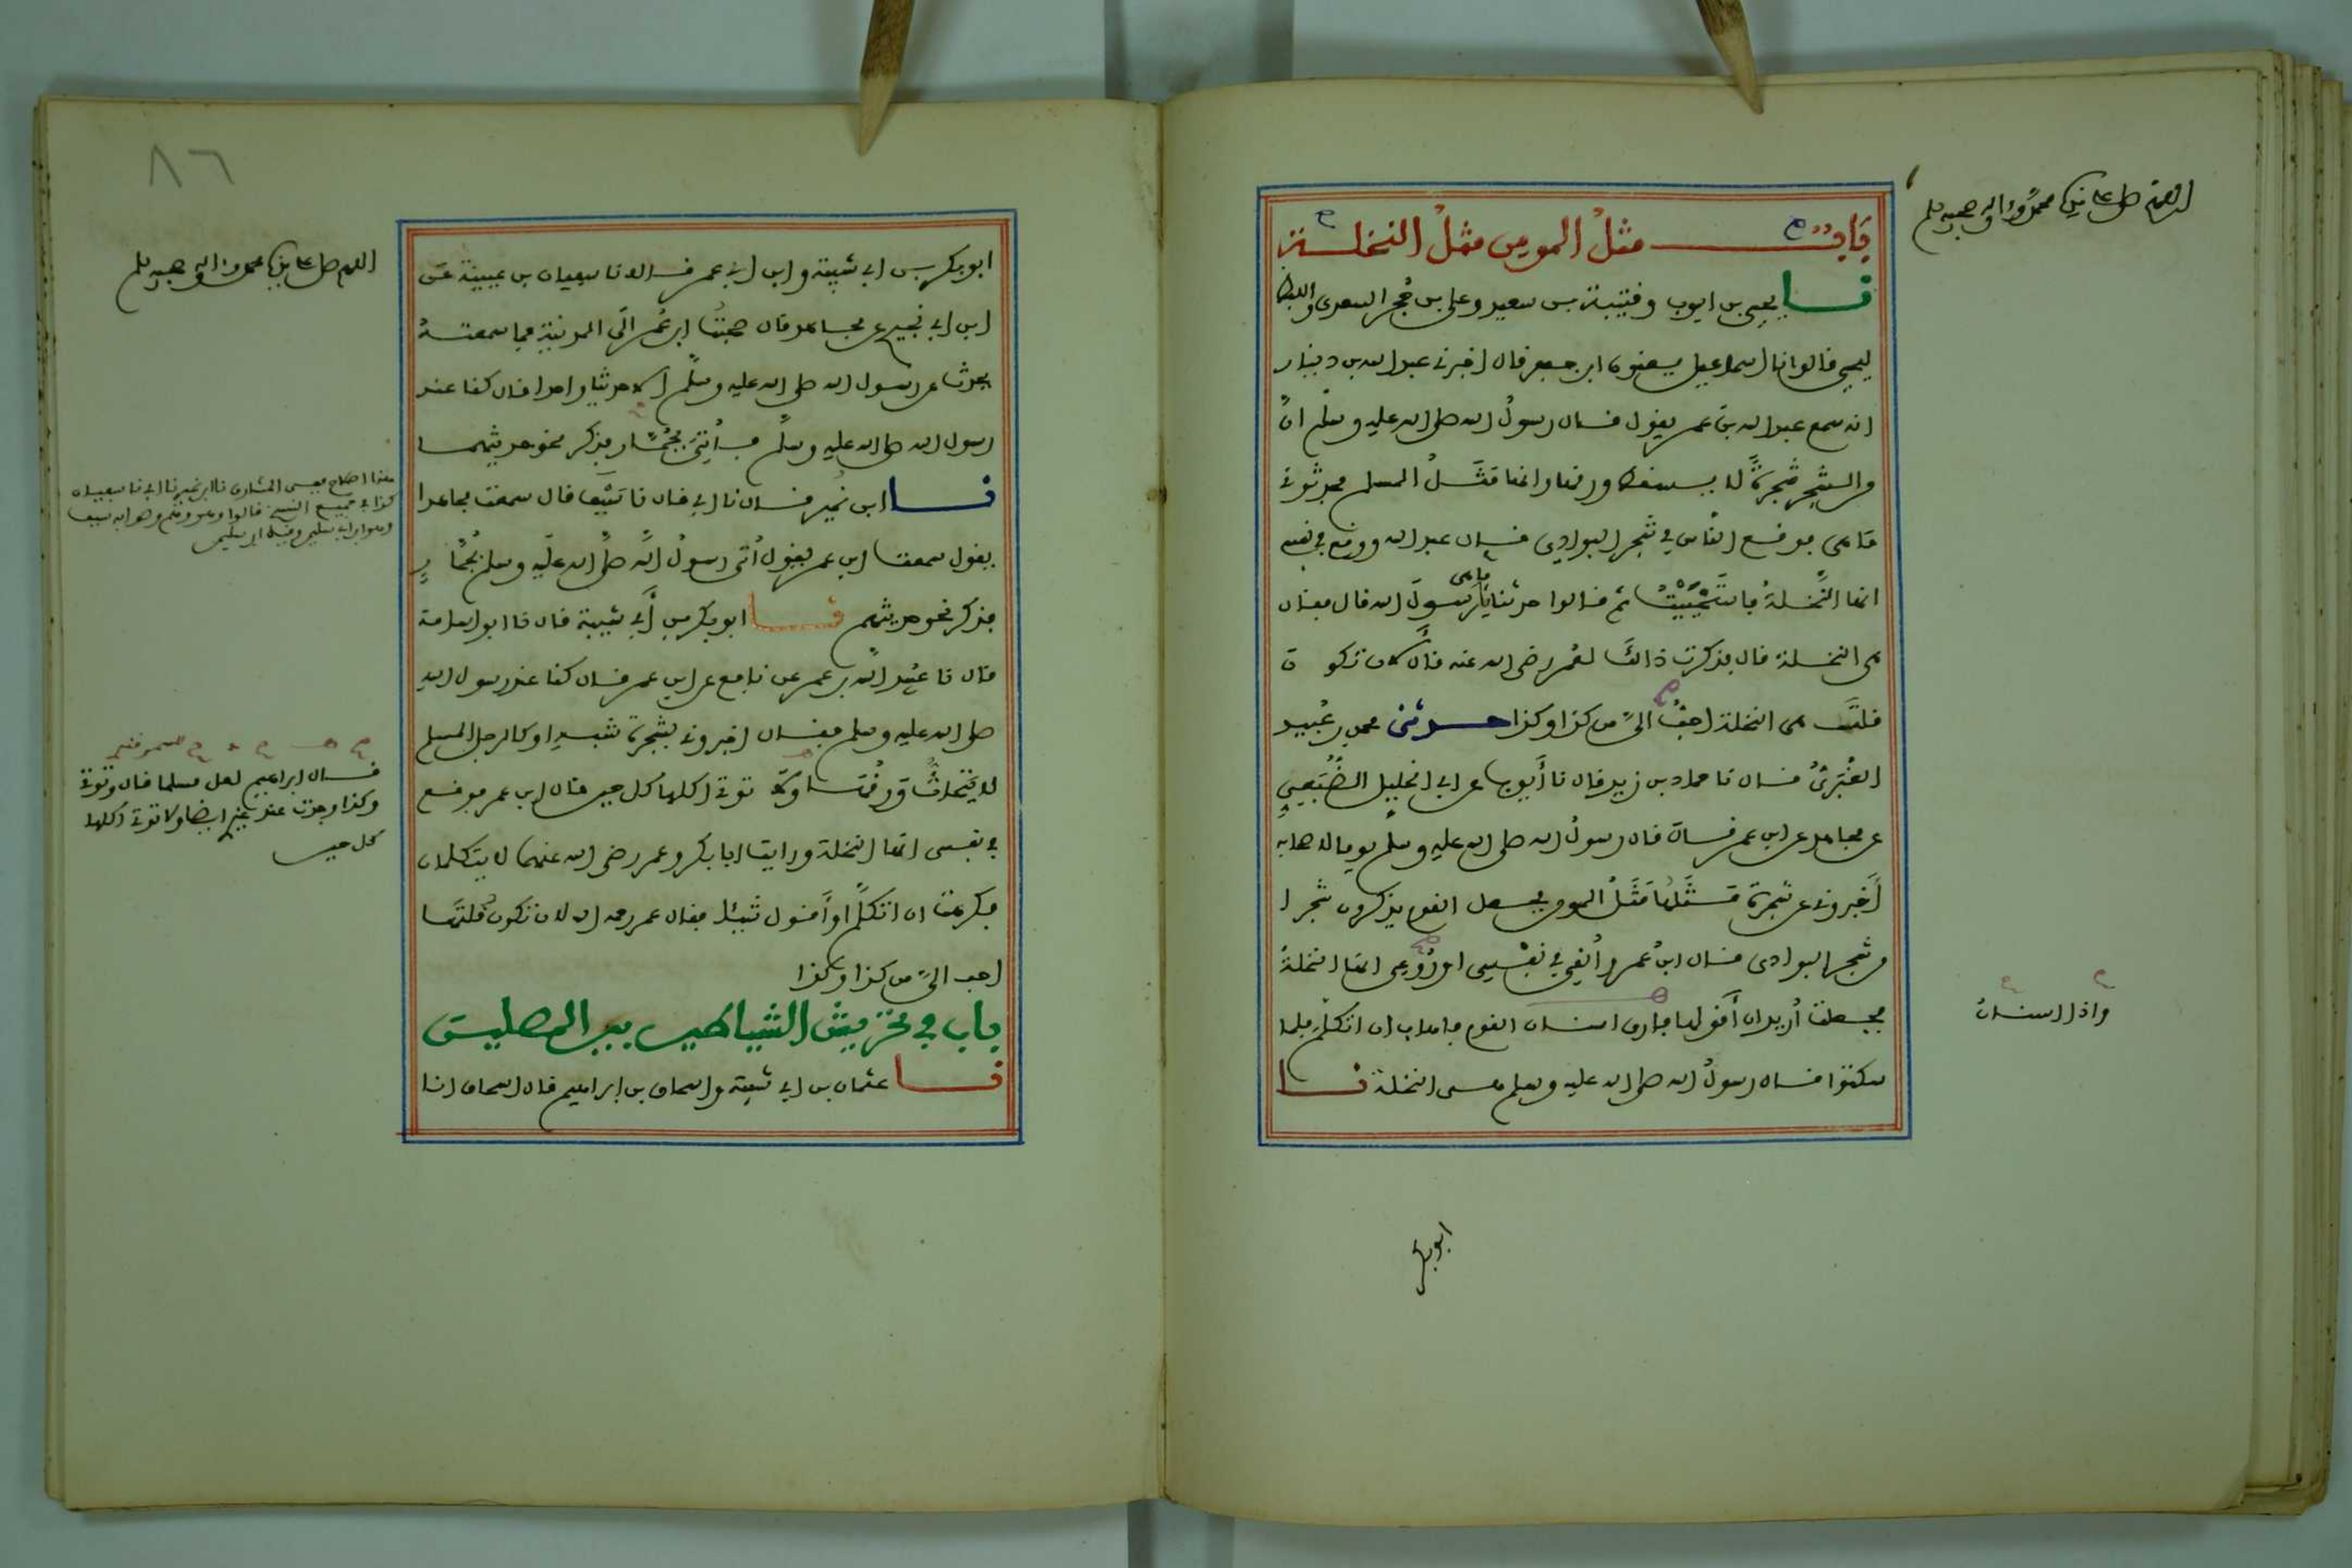 اللهم صل على نبينا محمد وءاله وصحبه وسلم
باب مثل المومن مثل النخلة
نا يحيى بن ايوب وقتيبة بن سعيد وعلي بن حجر السعدي واللفظ
ليحيى قالوا نا اسماعيل يعنون ابن جعفر قال اخبرني عبد الله بن دينار
انه سمع عبد الله بن عمر يقول قال رسول الله صلى الله عليه وسلم ان
من الشجر شجرة لا يسقط ورقها وانها مثل المسلم فحدثوني
ما هي فوقع الناس في شجر البوادي قال عبد الله ووقع في نفسي
انها النخلة فاستحييت ثم قالوا حدثنا ما هي يا رسول الله قال فقال
هي النخلة قال فذكرت ذالك لعمر رضي الله عنه قال لان تكون
قلت هي النخلة احب الي من كذا وكذا حدثني محمد بن عبيد
الغبري قال نا حماد بن زيد قال نا ايوب عن ابي الخليل الضبعي
عن مجاهد عن ابن عمر قال قال رسول الله صلى الله عليه وسلم يوما لاصحابه
اخبروني عن شجرة مثلها مثل المومن فجعل القوم يذكرون شجرا
من شجر البوادي قال ابن عمر والقي في نفسي او روعي انها النخلة
فجعلت اريد ان اقولها فارى اسنان القوم فاهاب ان اتكلم فلما
سكتوا قال رسول الله صلى الله عليه وسلم هي النخلة نا
واذا اسنان
ابوبكر
٨٦
اللهم صل على نبينا محمد وءاله وصحبه وسلم
ابو بكر بن ابي شيبة وابن ابي عمر قالا نا سفيان بن عيينة عن
ابن ابي نجيح عن مجاهد قال صحبت ابن عمر الى المدينة فما سمعته
يحدث عن رسول الله صلى الله عليه وسلم الا حديثا واحدا قال كنا عند
رسول الله صلى الله عليه وسلم فاتي بجمار فذكر نحو حديثهما
نا ابن نمير قال نا ابي قال نا سيف قال سمعت مجاهدا
يقول سمعت ابن عمر يقول اتى رسول الله صلى الله عليه وسلم بجمار
فذكر نحو حديثهم نا ابو بكر بن ابي شيبة قال نا ابو اسامة
قال نا عبيد الله بن عمر عن نافع عن ابن عمر قال كنا عند رسول الله
صلى الله عليه وسلم فقال اخبروني بشجرة شبه او كالرجل المسلم
لا يتحات ورقها ولا توتي اكلها كل حين قال ابن عمر فوقع
في نفسي انها النخلة ورايت ابا بكر وعمر رضي الله عنهما لا يتكلمان
فكرهت ان اتكلم او اقول شيئا فقال عمر رحمه الله لان تكون قلتها
احب الي من كذا وكذا
باب في تحريش الشياطين بين المصلين
نا عثمان بن ابي شيبة واسحاق بن ابراهيم قال اسحاق انا
قال ابراهيم لعل مسلما قال وتوتي
وكذا وجدت عند غيره ايضا ولا توتي اكلها
كل حين